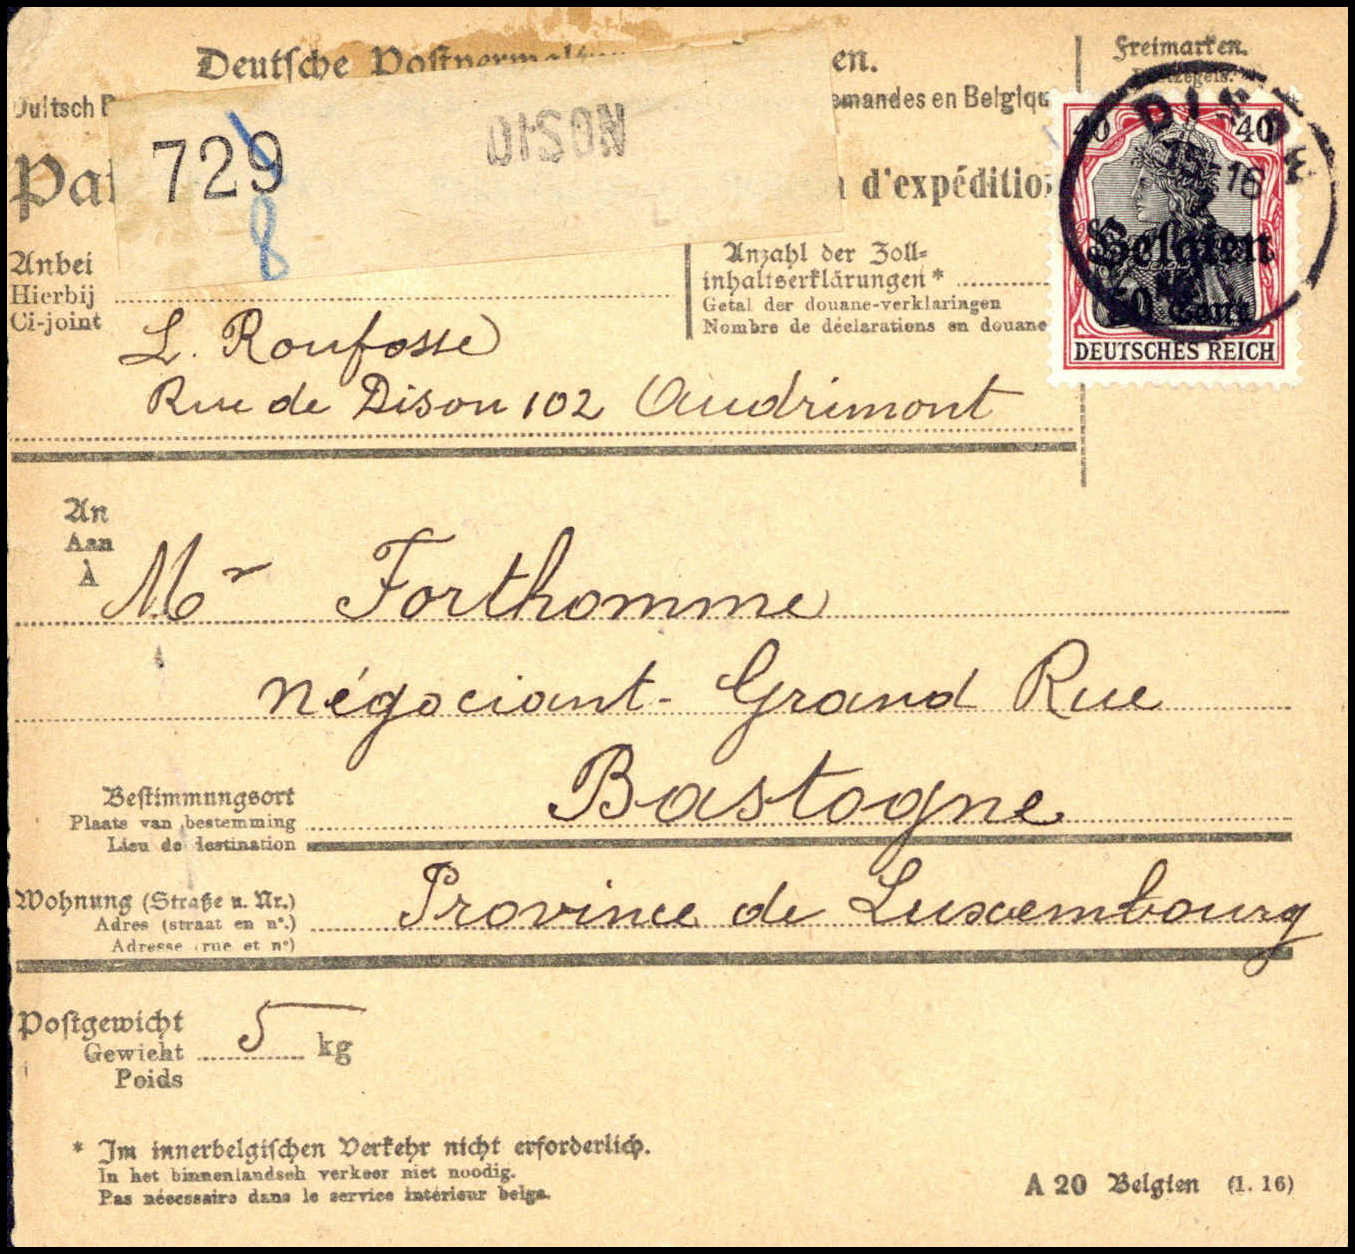 Deutsche en.
Freimarken.
Duitsch emandes en Belgiqu
40 40
729 DISON
8
d'expéditio
15-16
Anbei
Hierbij
Ci-joint
Anzahl der Zoll-
inhaltserklärungen *
Getal der douane-verklaringen
Nombre de déclarations en douane
Belgien
Cent
DEUTSCHES REICH
L. Roufosse
Rue de Dison 102 Andrimont
An
Aan
À
Mr Forthomme
négociant - Grand Rue
Bastogne
Bestimmungsort
Plaats van bestemming
Lieu de destination
Province de Luxembourg
Wohnung (Straße u. Nr.)
Adres (straat en n°.)
Adresse (rue et n°)
Postgewicht
Gewicht 5 kg
Poids
* Im innerbelgischen Verkehr nicht erforderlich.
In het binnenlandsch verkeer niet noodig.
Pas nécessaire dans le service intérieur belge.
A 20 Belgien (1. 16)